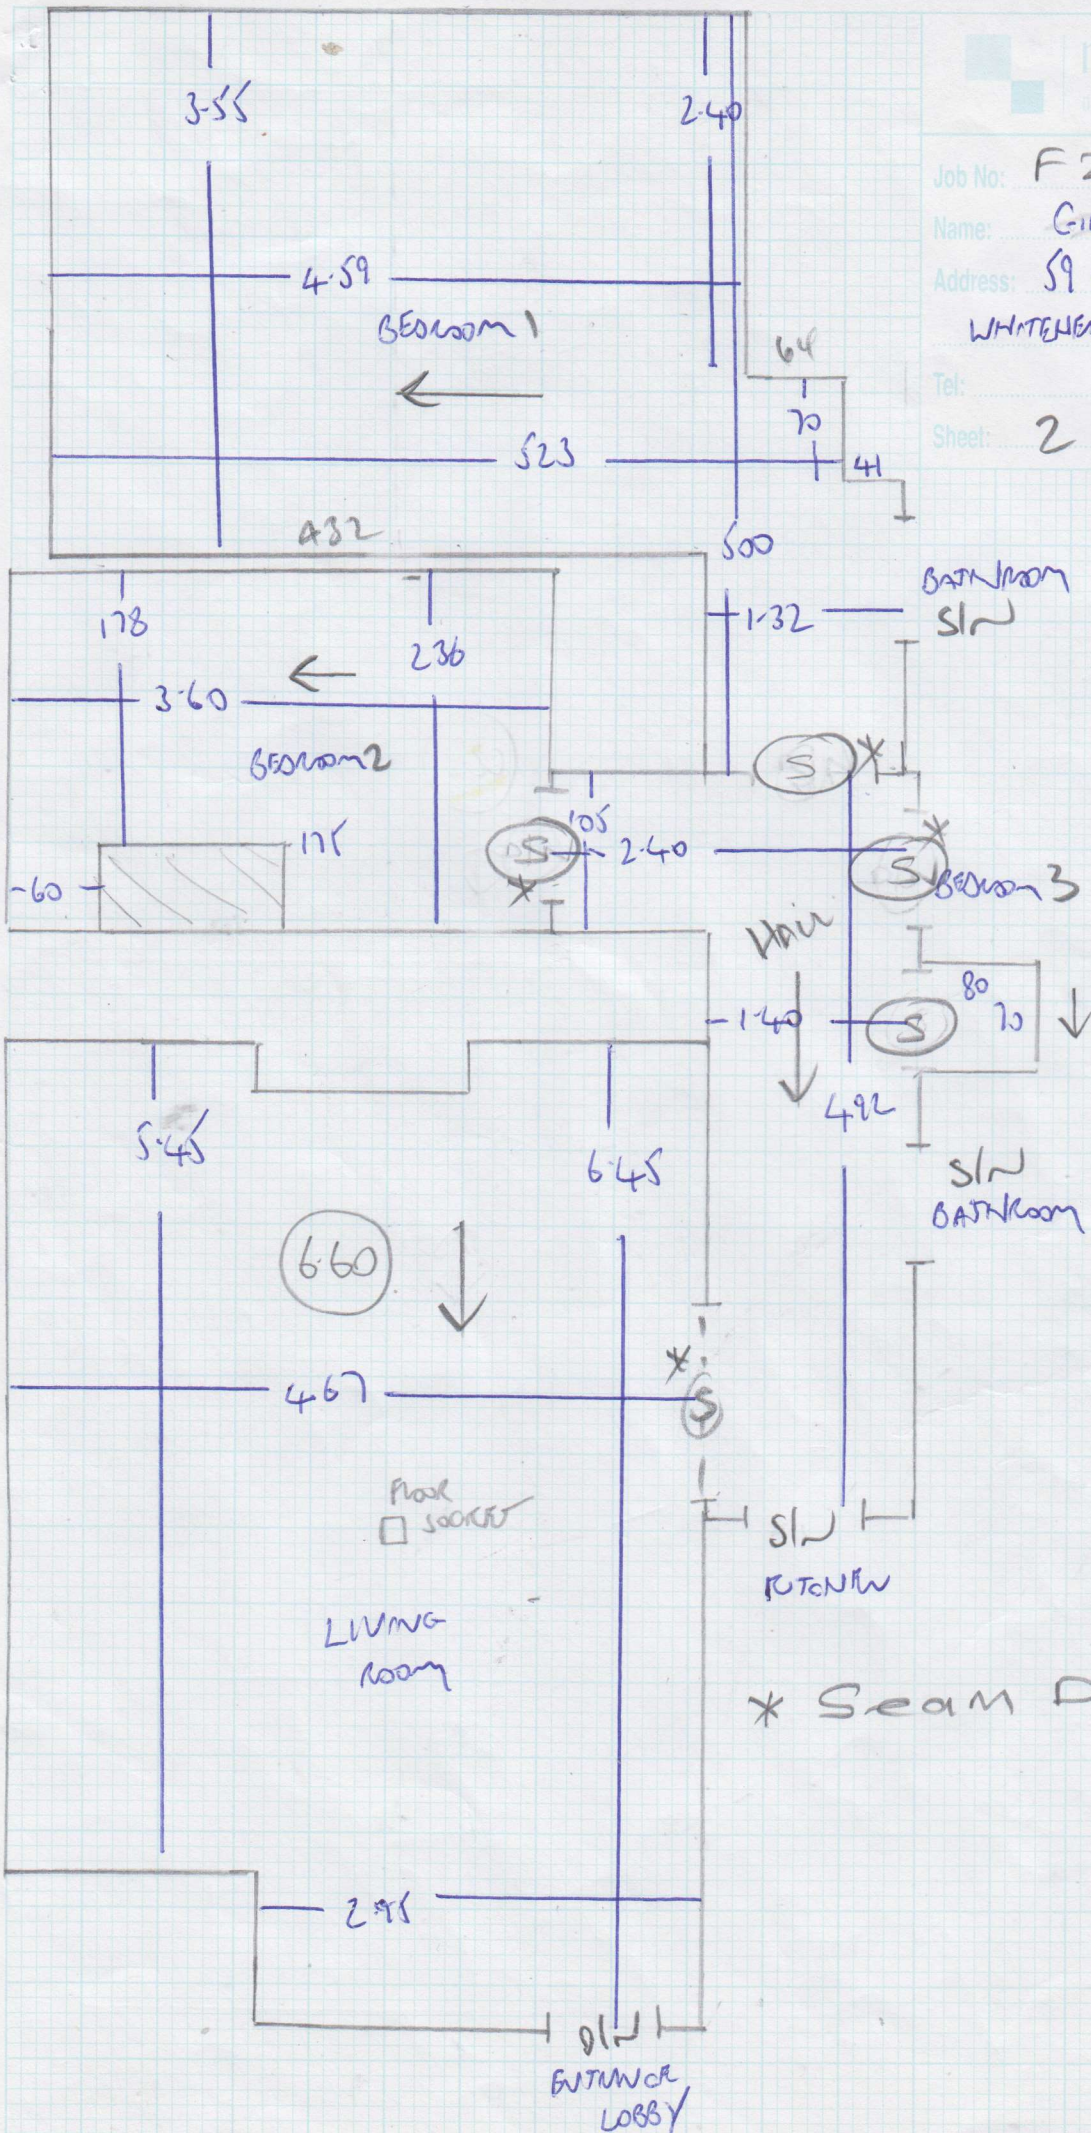 3.55
2.40
Job No: F 2
Name:
Address: 59
4.59
BEDROOM 1
64
Tel:
70
Sheet: 2
523
41
432
500
BATHROOM
S/N
178
236
1.32
3.60
BEDROOM 2
S *
105
175
S
2.40
*
S
BEDROOM 3
-60
*
HALL
80
70
1.40
S
492
5.45
6.45
S/N
BATHROOM
6.60
*
4.67
S
FLOOR
SOCKET
S/N
KITCHEN
LIVING
ROOM
* Seam D
2.95
D/N
ENTRANCE
LOBBY